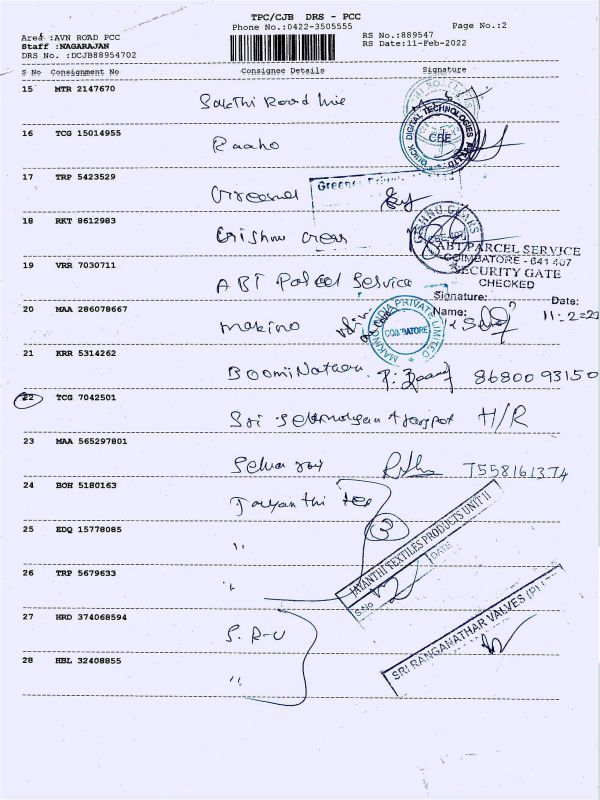 TPC/CJB DRS - PCC
Phone No.:0422-3505555
Page No.:2
Area :AVN ROAD PCC
RS No.:889547
Staff :NAGARAJAN
RS Date:11-Feb-2022
DRS No. :DCJB88954702
S No Consignment No Consignee Details Signature
15 MTR 2147670
Sakthi Road line
16 TCG 15014955
Raaho
QUICK DIGITAL TECHNOLOGIES PVT LTD
CBE
17 TRP 5423529
18 RKT 8612983
Crishnu Gears
KRISHNU GEARS
CBE
19 VRR 7030711
ABT Parcel Service
ABT PARCEL SERVICE
COIMBATORE - 641 407
SECURITY GATE
CHECKED
Signature:
Date:
Name:
11-2-22
20 MAA 286078667
Makino
MAKINO INDIA PRIVATE LIMITED
COIMBATORE
21 KRR 5314262
BoomiNataen
8680093150
22 TCG 7042501
Sri H/R
23 MAA 565297801
Selva
7558161374
24 BOH 5180163
Jayanthi tex
JAYANTHI TEXTILES PRODUCTS UNIT II
S.No
DATE
3
25 EDQ 15778085
"
26 TRP 5679633
"
27 HRD 374068594
S.R.V
SRI RANGANATHAR VALVES (P)
28 HBL 32408855
"